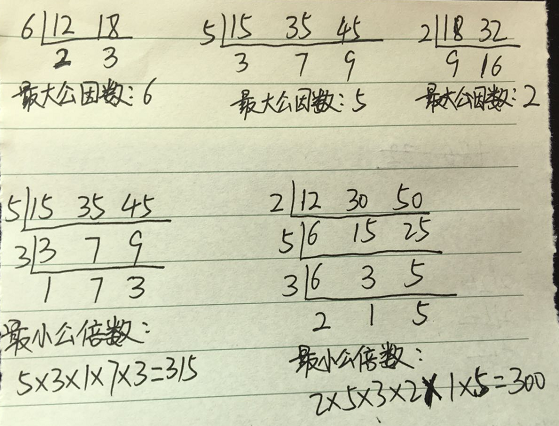 6 12 18
2 3
最大公因数:6
5 15 35 45
3 7 9
最大公因数:5
2 18 32
9 16
最大公因数:2
5 15 35 45
3 3 7 9
1 7 3
最小公倍数:
5×3×1×7×3=315
2 12 30 50
5 6 15 25
3 6 3 5
2 1 5
最小公倍数:
2×5×3×2×1×5=300